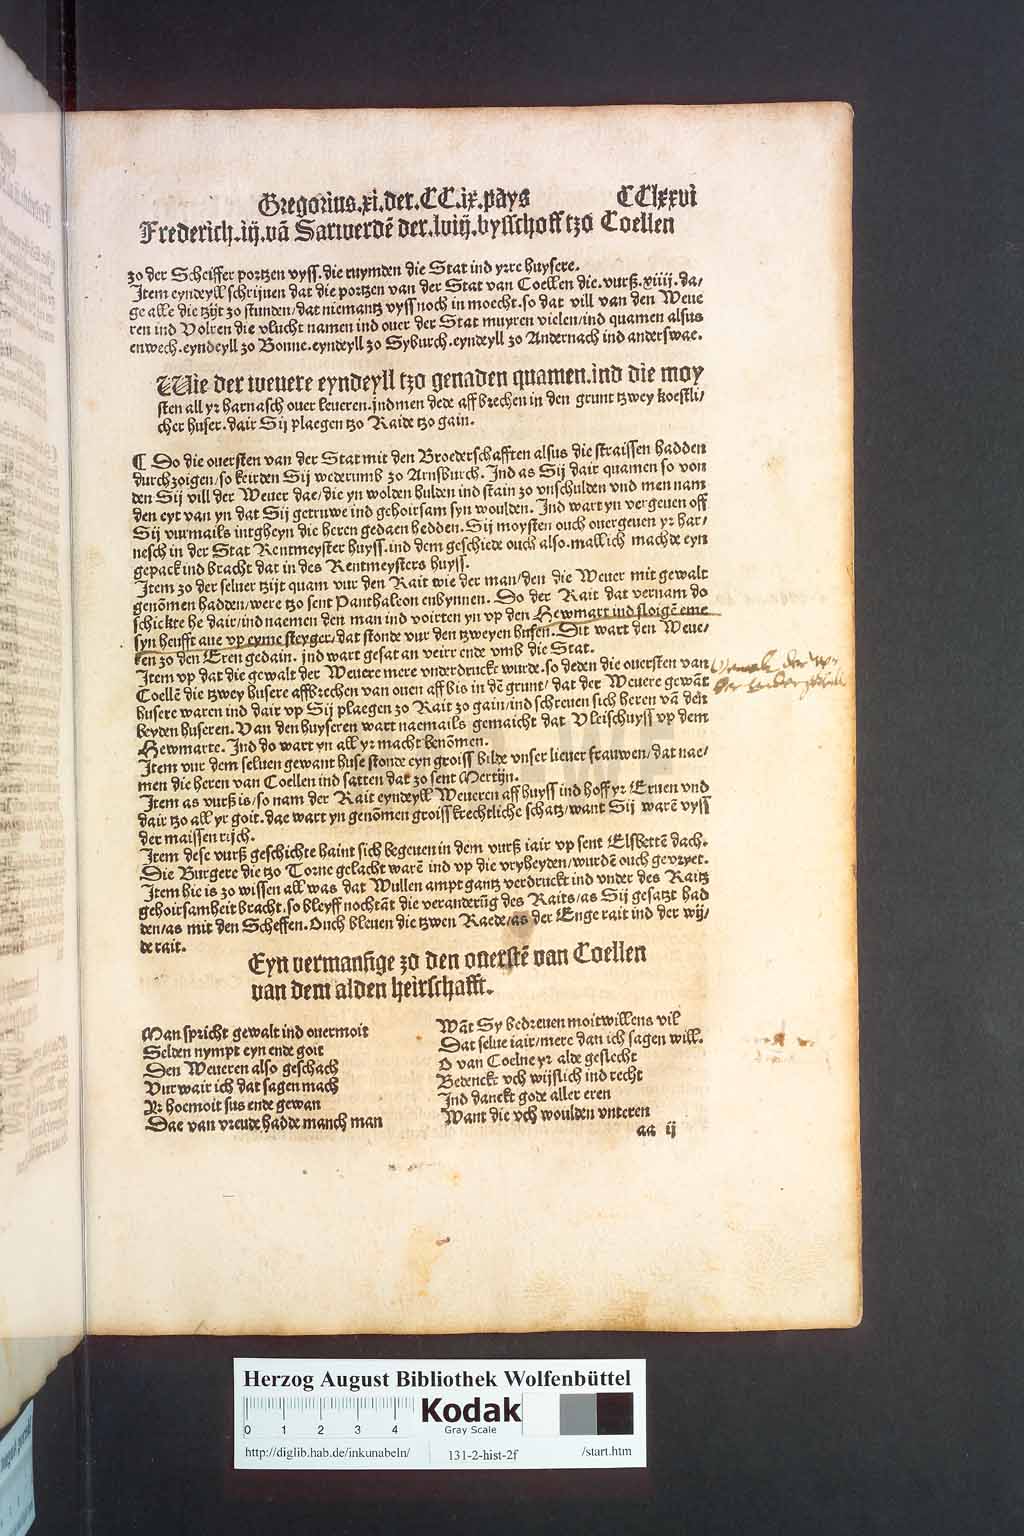 Gregorius.xi.der.CC.ix.pays CClxxvi
Frederich.iij.vā Sarwerdē der.lviij.bysschoff tzo Coellen
zo der Scheiffer portzen vyss.die ruymden die Stat ind yrre huysere.
Item eyndeyll schrijuen dat die portzen van der Stat van Coellen die.vurß.xiiij.da/
ge alle die tzijt zo stunden/dat niemantz vyss noch in moecht.so dat vill van den Weue
ren ind Volren die vlucht namen ind ouer der Stat muyren vielen/ind quamen alsus
enwech.eyndeyll zo Bonne.eyndeyll zo Syburch.eyndeyll zo Andernach ind anderswae.
Wie der weuere eyndeyll tzo genaden quamen.ind die moy
sten all yr harnasch ouer leueren.jnd men dede aff brechen in den grunt tzwey koestli/
cher huser.dair Sij plaegen tzo Raide tzo gain.
¶ Do die ouersten van der Stat mit den Broederschafften alsus die straissen hadden
durch zoigen/so keirden Sij wederumb zo Arnsburch. Ind as Sij dair quamen so von
den Sij vill der Weuer dae/die yn wolden hulden ind stain zo vnschulden vnd men nam
den eyt van yn dat Sij getruwe ind gehoirsam syn woulden. Ind wart yn vergeuen off
Sij vurmails intgheyn die heren gedaen hedden. Sij moysten ouch ouergeuen yr har/
nesch in der Stat Rentmeyster huyss.ind dem geschiede ouch also.mallich machde eyn
gepack ind bracht dat in des Rentmeysters huyss.
Item zo der seluer tzijt quam vur den Rait wie der man/den die Weuer mit gewalt
genōmen hadden/were tzo sent Panthaleon enbynnen. Do der Rait dat vernam do
schickte he dair/ind naemen den man ind voirten yn vp den Hewmart ind sloigē eme
syn heufft aue vp eyme steyger/dat stonde vur den tzweyen husen. Dit wart den Weue/
ren zo den Eren gedain. jnd wart gesat an veirr ende vmb die Stat.
Item vp dat die gewalt der Weuere mere vnderdruckt wurde.so deden die ouersten van
Coellē die tzwey husere affbrechen van ouen aff bis in dē grunt/dat der Weuere gewāt
husere waren ind dair vp Sij plaegen zo Rait zo gain/ind schreuen sich heren vā den
beyden huseren. Van den huyseren wart naemails gemaicht dat Vleischuyss vp dem
Hewmarte. Ind do wart yn all yr macht benōmen.
Item vur dem seluen gewant huse stonde eyn groiss bilde vnser lieuer frauwen/dat nae/
men die heren van Coellen ind satten dat zo sent Mertijn.
Item as vurß is/so nam der Rait eyndeyll Weueren aff huyss ind hoff yr Eruen vnd
dair tzo all yr goit.dae wart yn genōmen groiss krechtliche schatz/want Sij warē vyss
der maissen rijch.
Item dese vurß geschichte haint sich begeuen in dem vurß iair vp sent Elsbettē dach.
Die Burgere die tzo Torne gelacht warē ind vp die vryheyden/wurdē ouch gevryet.
Item hie is zo wissen all was dat Wullen ampt gantz verdruckt ind vnder des Raitz
gehoirsamheit bracht.so bleyff nochtāt die veranderūg des Raits/as Sij gesatzt had
den/as mit den Scheffen. Ouch bleuen die tzwen Raede/as der Enge rait ind der wij/
de rait.
Eyn vermanūge zo den ouerstē van Coellen
van dem alden heirschafft.
Man spricht gewalt ind ouermoit
Selden nympt eyn ende goit
Den Weueren also geschach
Vur wair ich dat sagen mach
Yr hoemoit sus ende gewan
Dae van vreude hadde manch man
Wāt Sy bedreuen moitwillens vil
Dat selue iair/mere dan ich sagen will.
O van Coelne yr alde geslecht
Bedenckt vch wijslich ind recht
Ind danckt gode aller eren
Want die vch woulden vnteren
aa ij
Herzog August Bibliothek Wolfenbüttel
0 1 2 3 4
Kodak
Gray Scale
http://diglib.hab.de/inkunabeln/ 131-2-hist-2f /start.htm